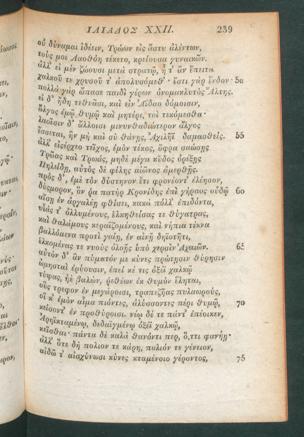 ΙΛΙΑΔΟΣ XXII. 239
οὐ δύναμαι ἰδέειν, Τρώων εἰς ἄστυ ἀλέντων,
τούς μοι Λαοθόη τέκετο, κρείουσα γυναικῶν.
ἀλλ' εἰ μὲν ζώουσι μετὰ στρατῷ, ἦ τ' ἂν ἔπειτα
χαλκοῦ τε χρυσοῦ τ' ἀπολυσόμεθ'· ἔστι γὰρ ἔνδον· 50
πολλὰ γὰρ ὤπασε παιδὶ γέρων ὀνομακλυτὸς Ἄλτης.
εἰ δ' ἤδη τεθνᾶσι, καὶ εἰν Ἀΐδαο δόμοισιν,
ἄλγος ἐμῷ θυμῷ καὶ μητέρι, τοὶ τεκόμεσθα·
λαοῖσιν δ' ἄλλοισι μινυνθαδιώτερον ἄλγος
ἔσσεται, ἢν μὴ καὶ σὺ θάνῃς, Ἀχιλῆϊ δαμασθείς. 55
ἀλλ' εἰσέρχεο τεῖχος, ἐμὸν τέκος, ὄφρα σαώσῃς
Τρῶας καὶ Τρωὰς, μηδὲ μέγα κῦδος ὀρέξῃς
Πηλείδῃ, αὐτὸς δὲ φίλης αἰῶνος ἀμερθῇς.
πρὸς δ', ἐμὲ τὸν δύστηνον ἔτι φρονέοντ' ἐλέησον,
δύσμορον, ὅν ῥα πατὴρ Κρονίδης ἐπὶ γήραος οὐδῷ 60
αἴσῃ ἐν ἀργαλέῃ φθίσει, κακὰ πόλλ' ἐπιδόντα,
υἷάς τ' ὀλλυμένους, ἑλκηθείσας τε θύγατρας,
καὶ θαλάμους κεραϊζομένους, καὶ νήπια τέκνα
βαλλόμενα προτὶ γαίῃ, ἐν αἰνῇ δηϊοτῆτι,
ἑλκομένας τε νυοὺς ὀλοῇς ὑπὸ χερσὶν Ἀχαιῶν. 65
αὐτὸν δ' ἂν πύματόν με κύνες πρώτῃσι θύρῃσιν
ὠμησταὶ ἐρύουσιν, ἐπεί κέ τις ὀξέϊ χαλκῷ
τύψας, ἠὲ βαλὼν, ῥεθέων ἐκ θυμὸν ἕληται,
οὓς τρέφον ἐν μεγάροισι, τραπεζῆας πυλαωροὺς,
οἵ κ' ἐμὸν αἷμα πιόντες, ἀλύσσοντες πέρι θυμῷ, 70
κείσοντ' ἐν προθύροισι. νέῳ δέ τε πάντ' ἐπέοικεν,
Ἀρηϊκταμένῳ, δεδαϊγμένῳ ὀξέϊ χαλκῷ,
κεῖσθαι· πάντα δὲ καλὰ θανόντι περ, ὅ,ττι φανήῃ·
ἀλλ' ὅτε δὴ πολιόν τε κάρη, πολιόν τε γένειον,
αἰδῶ τ' αἰσχύνωσι κύνες κταμένοιο γέροντος, 75